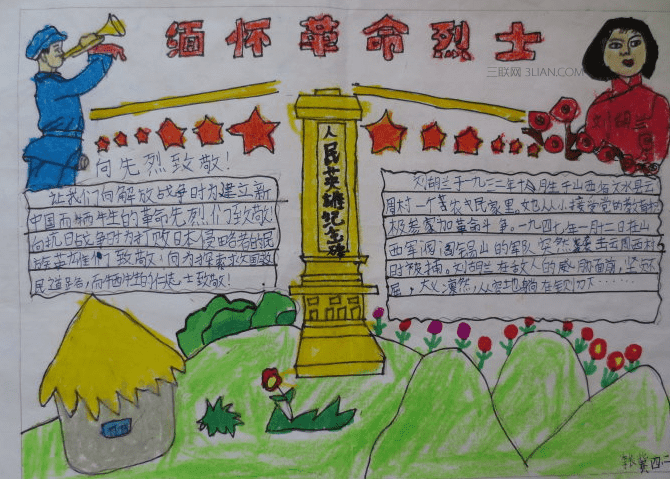 缅怀革命烈士
三联网 3LIAN.COM
刘胡兰
向先烈致敬!
让我们向解放战争时为建立新
中国而牺牲的革命先烈们致敬!
向抗日战争时为打败日本侵略者的民
族英雄们致敬,向为探索救国救
民道路,而牺牲的 士致敬!
人民英雄纪念碑
刘胡兰于一九三二年十月生于山西省文水县云
周村一个 农民家里。她从小接受党的教育
积极 加革命斗争。一九四七年一月十二日在山
西军阀阎锡山的军队突然袭击云周西村
时被捕。刘胡兰在敌人的威胁面前,坚
屈,大义凛然,从容地躺在铡刀下……